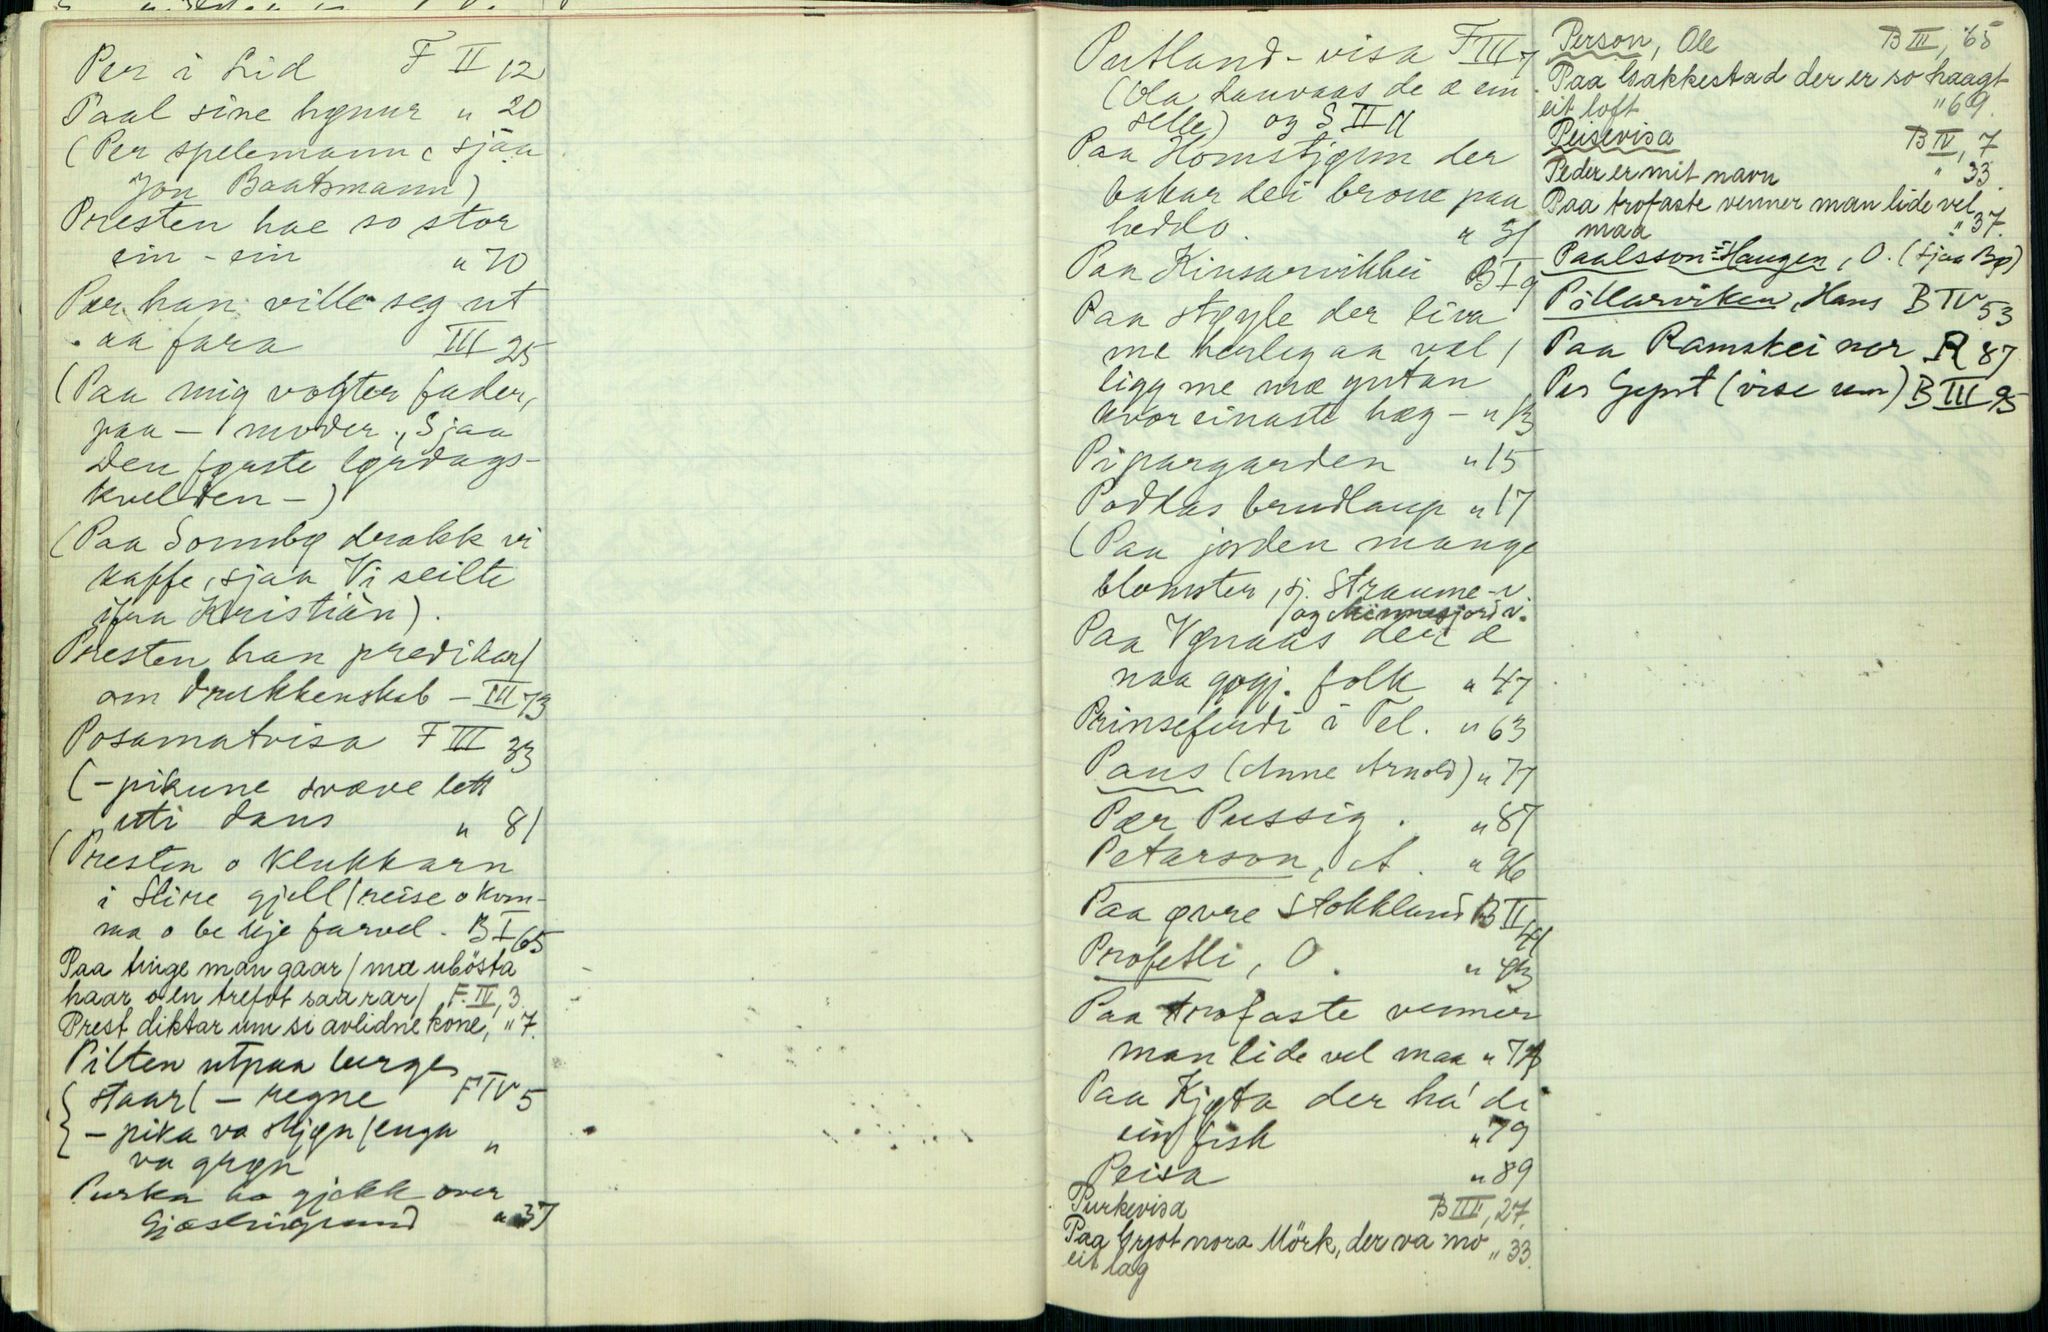 Per i Lid F II 12
Paal sine hønur " 20
(Per spelemann, sjaa
Jon Baatsmann)
Presten hae so stor
ein - ein " 70
Per han ville seg ut
aa fara III 25
(Paa mig vogter fader,
paa - moder., Sjaa
Den fyrste lørdags-
kvelden -)
(Paa Sornbø drakk vi
kaffe, sjaa Vi seilte
ifraa Kristián).
Presten han predikar/
om drukkenskab - III 73
Posamatvisa F III 33
(- pikune svæve lett
uti dans " 81
(Presten o klukkarn
i Slire gjell / reise o kom-
ma o be lije farvel. B I 65
Paa tinge man gaar / mæ ubösta
haar o en trefot saa rar / F. IV, 3.
Prest diktar um si avlidne kone, " 7.
Pilten utpaa berge
staar (- regne F IV 5
- pika va skjøn / enga "
va grøn
Purka ho gjekk over
Gjæslingsund " 37
Putland - visa F III 7
(Ola Lauvaas de æ ein
selle) og S II 11
Paa Homstjønn der
bakar dei broue paa
heddo. " 31
Paa Kinsarvikhei B I 9
Paa Støyle der liva
me herleg aa væl /
ligg me mæ gutan
kvor einaste hæg - " 13
Pipargarden " 15
Poddas brudlaup " 17
(Paa jorden mange
blomster, sj. Straume-v.
og Minnesjord v.
Paa Vønaas der æ
naa gøgj. folk " 47
Prinseferdi i Tel. " 63
Paus (Anne Arnold) " 77
Per Pussig. " 87
Petarson, A. " 96
Paa øvre Stokkland B II 41
Profetli, O. " 43
Paa trofaste venner
man lide vel maa " 77
Paa Kjøta der ha' de
ein fisk " 79
Peisa " 89
Purkevisa B III, 27.
Paa Grjot nora Mörk, der va mo " 33.
eit lag
Person, Ole B III, 65
Paa Gakkestad der er so haagt
eit loft " 69.
Peisevisa B IV, 7
Peder er mit navn " 33.
Paa trofaste venner man lide vel
maa " 37.
Paalsson=Haugen, O. (sjaa Bø)
Pillarviken, Hans B IV 53
Paa Ramskei nor R 87
Per Gynt (vise um) B III 95